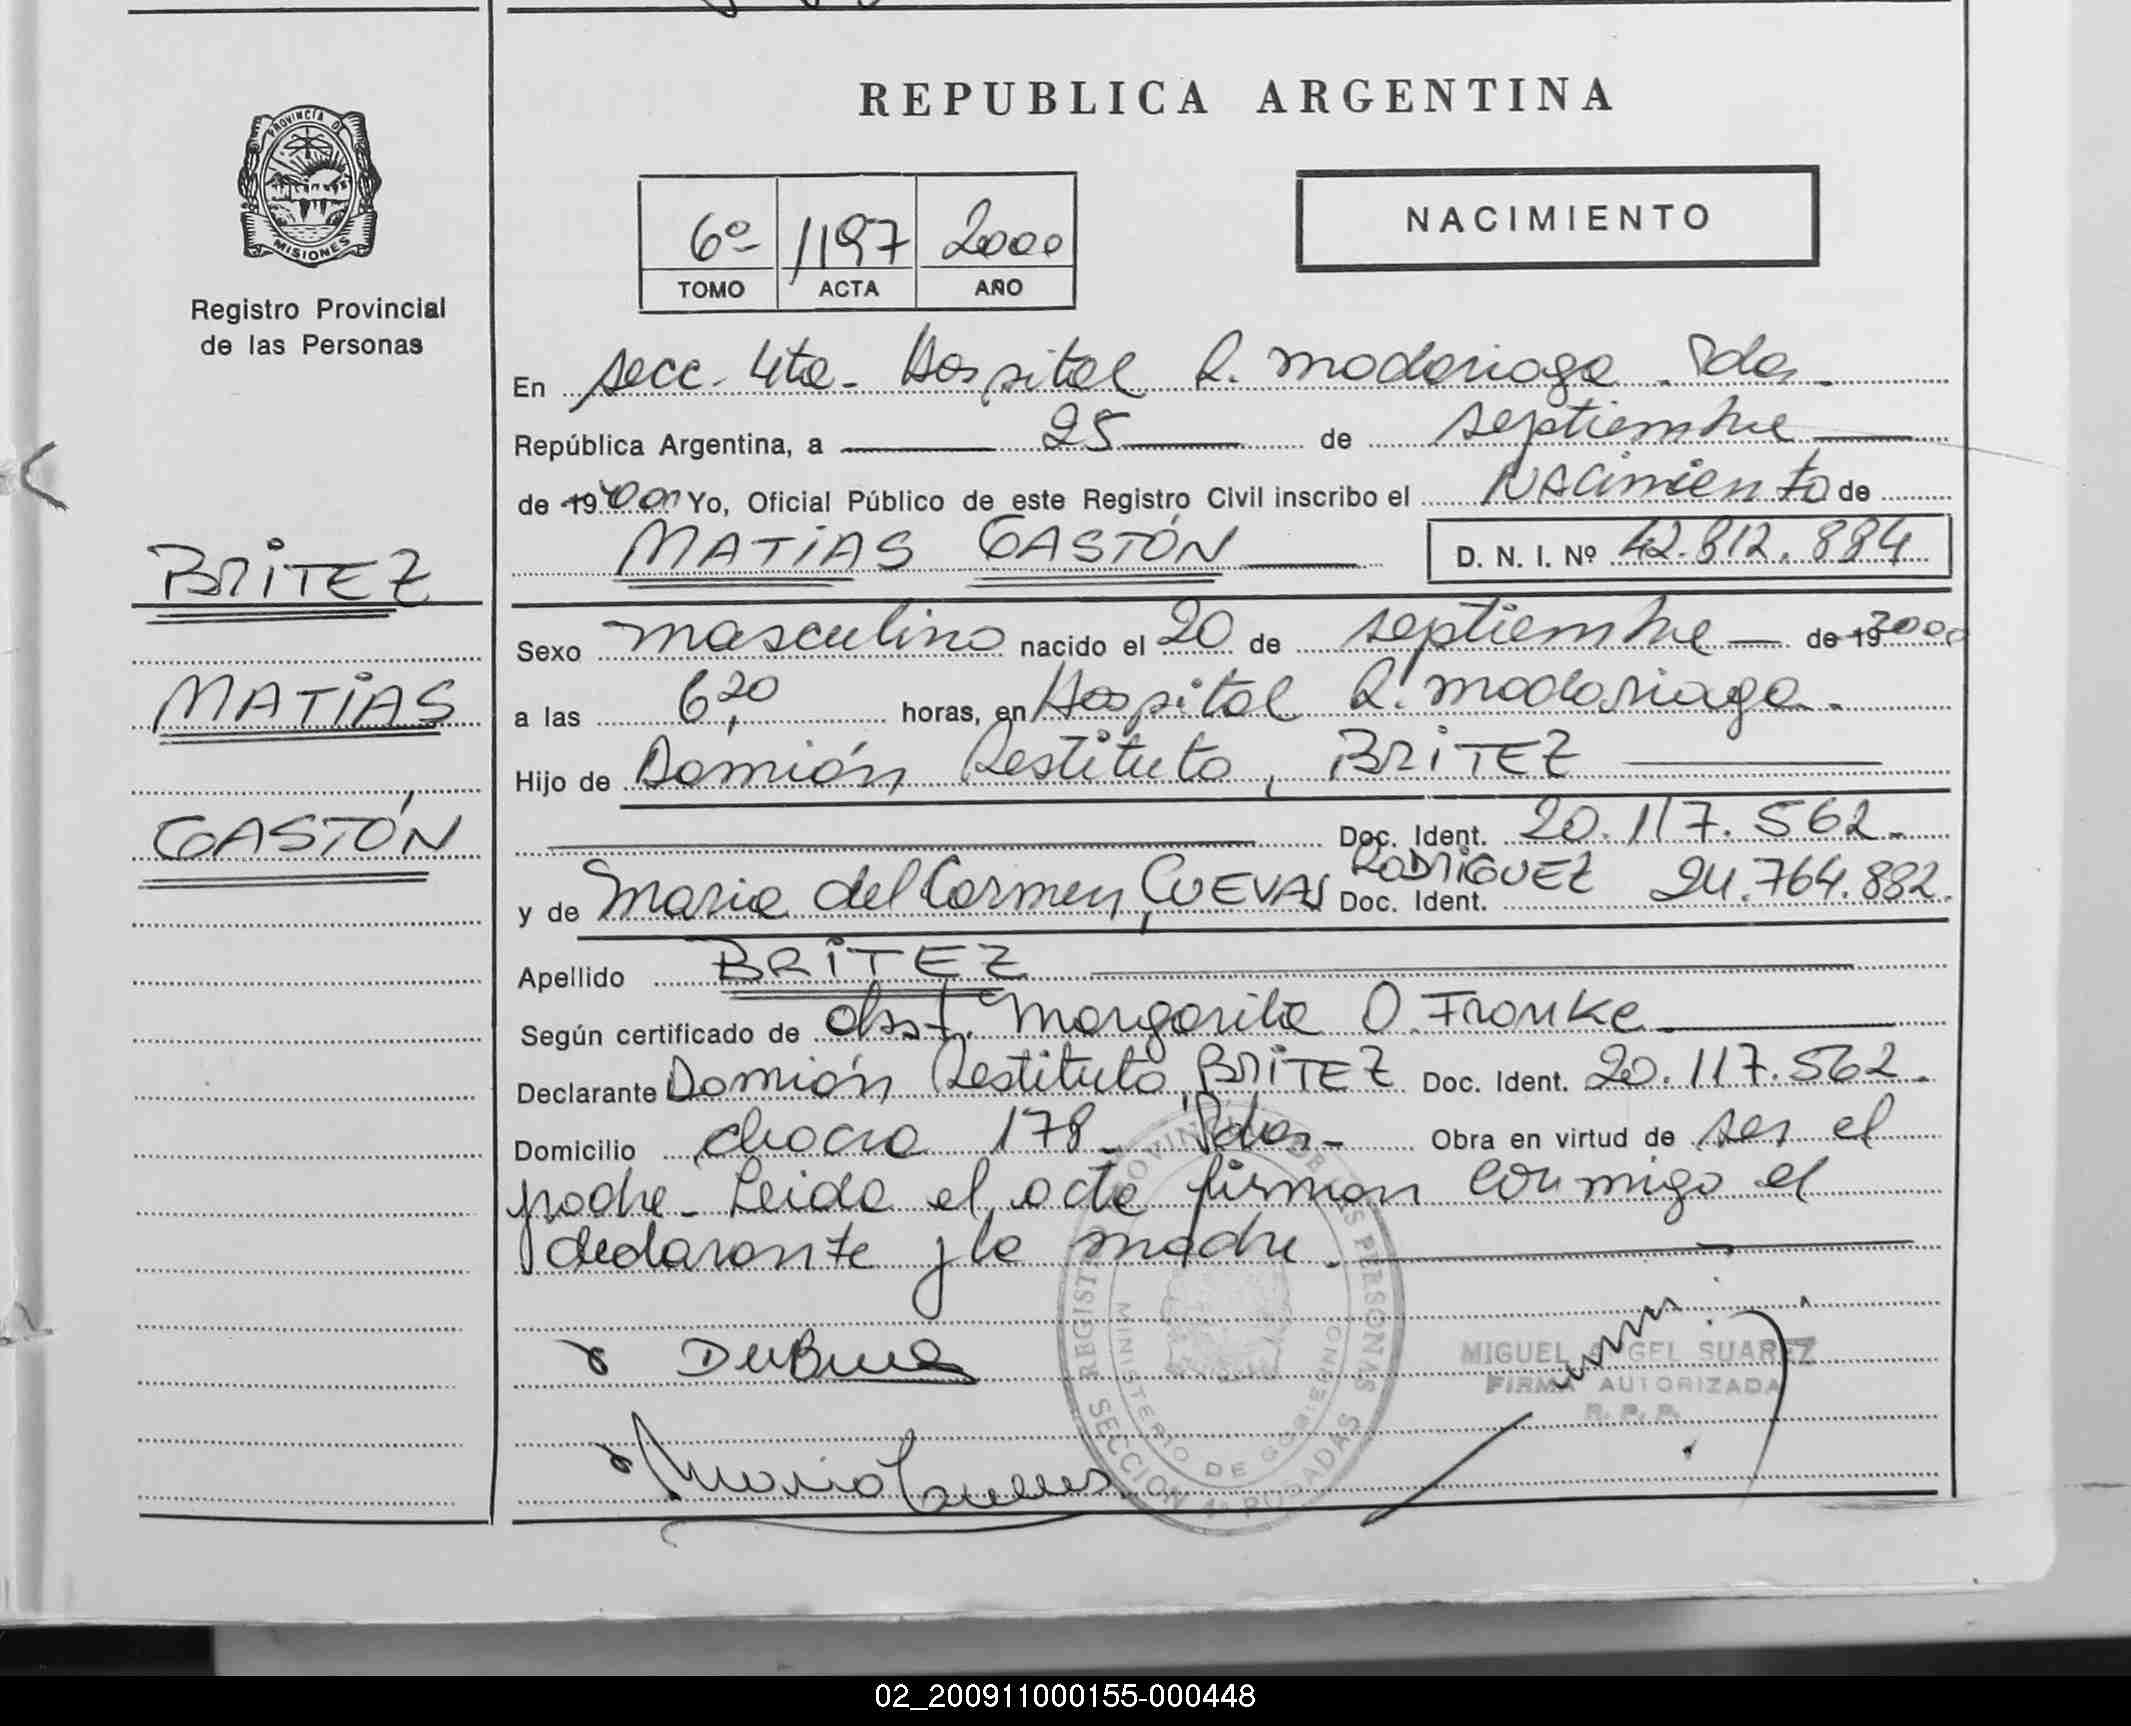 REPUBLICA ARGENTINA
PROVINCIA DE
MISIONES
Registro Provincial
de las Personas
6º 1197 2000
TOMO ACTA AÑO
NACIMIENTO
En secc. 4ta. Hospital R. Madariaga. Pdas.
República Argentina, a 25 de septiembre
de 19 Yo, Oficial Público de este Registro Civil inscribo el Nacimiento de
MATIAS GASTÓN D. N. I. Nº 42.812.884
BRITEZ
MATIAS
GASTÓN
Sexo masculino nacido el 20 de septiembre de 19 2000
a las 6,20 horas, en Hospital R. Madariaga.
Hijo de Damián Restituto, BRITEZ
Doc. Ident. 20.117.562.
y de Maria del Carmen, CUEVAS RODRIGUEZ Doc. Ident. 24.764.882.
Apellido BRITEZ
Según certificado de obst. Margarita O. Franke.
Declarante Damián Restituto, BRITEZ Doc. Ident. 20.117.562.
Domicilio chacra 178 Pdas. Obra en virtud de ser el
padre. Leida el acta firman conmigo el
declarante y la madre.
REGISTRO PROVINCIAL DE LAS PERSONAS
MINISTERIO DE GOBIERNO
SECCION 4ª POSADAS
MIGUEL ANGEL SUAREZ
FIRMA AUTORIZADA
R. P. P.
02_200911000155-000448